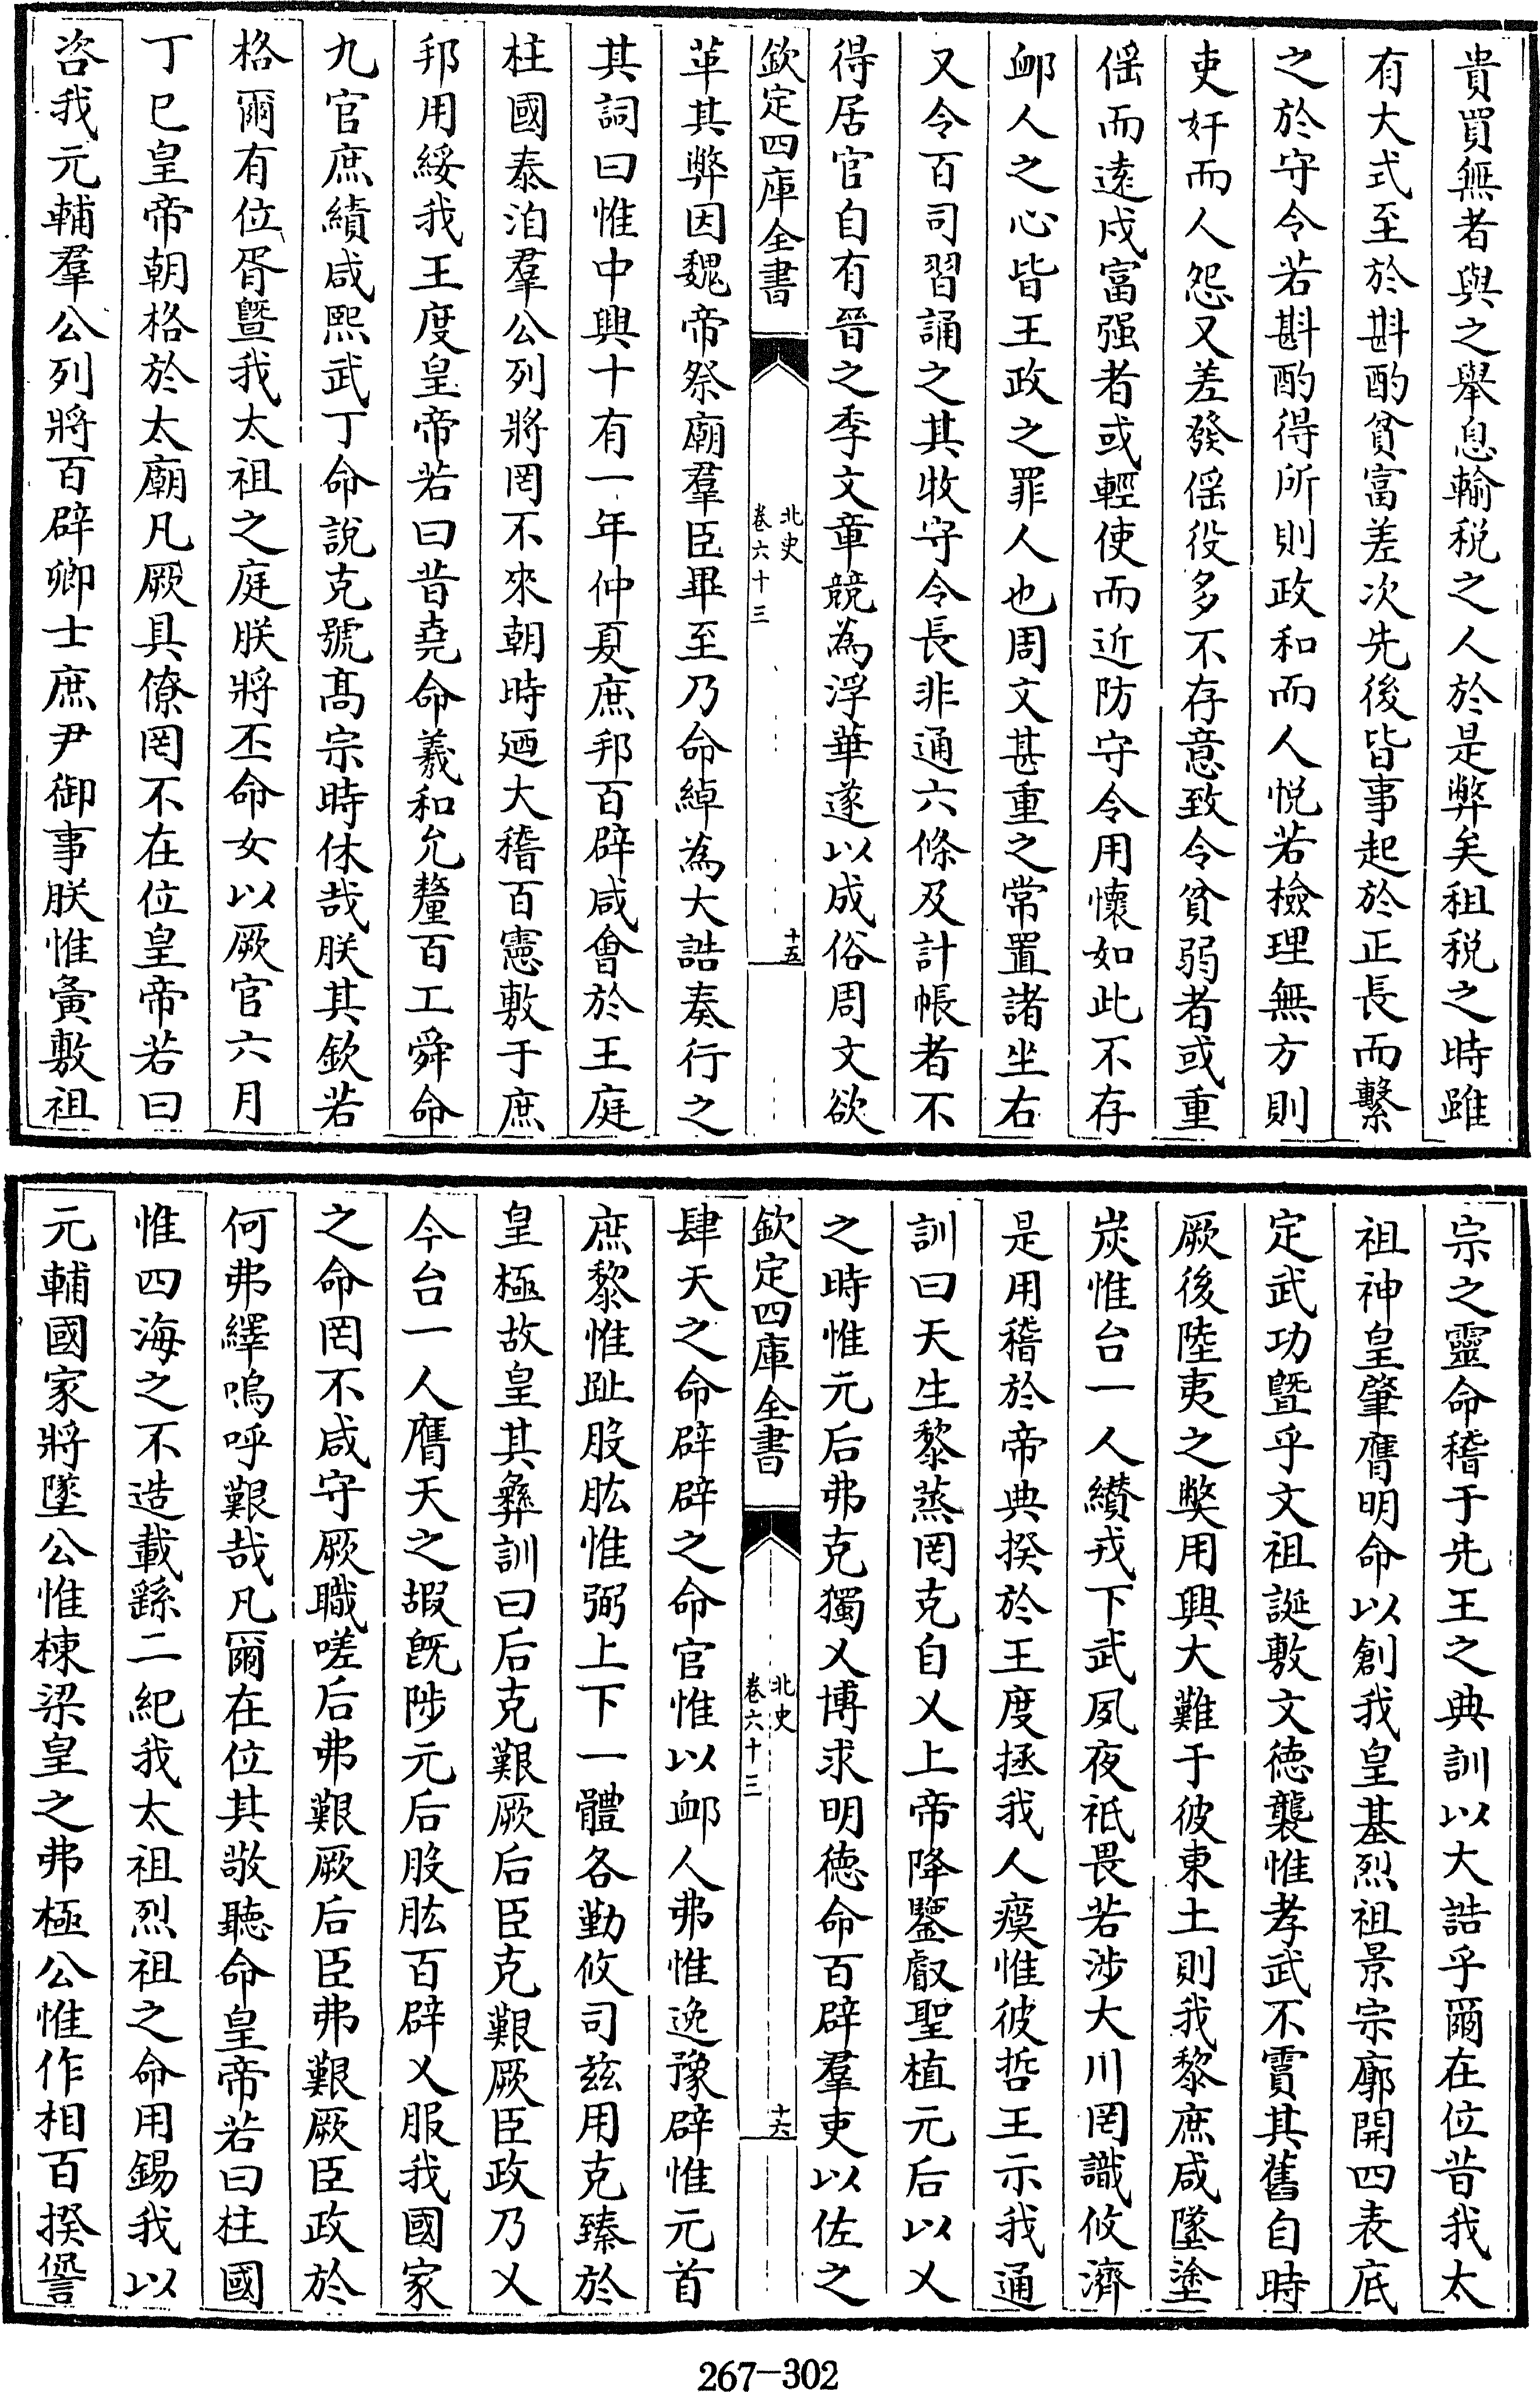 貴買無者與之舉息輸税之人於是弊矣租税之時雖
有大式至於斟酌貧富差次先後皆事起於正長而繫
之於守令若斟酌得所則政和而人悦若檢理無方則
吏奸而人怨又差發徭役多不存意致令貧弱者或重
徭而遠戍富强者或輕使而近防守令用懷如此不存
䘏人之心皆王政之罪人也周文甚重之常置諸坐右
又令百司習誦之其牧守令長非通六條及計帳者不
得居官自有晉之季文章競為浮華遂以成俗周文欲
欽定四庫全書
北史
卷六十三
十五
革其弊因魏帝祭廟羣臣畢至乃命綽為大誥奏行之
其詞曰惟中興十有一年仲夏庶邦百辟咸會於王庭
柱國泰洎羣公列將罔不來朝時廼大稽百憲敷于庶
邦用綏我王度皇帝若曰昔堯命羲和允釐百工舜命
九官庶績咸熙武丁命說克號髙宗時休哉朕其欽若
格爾有位胥曁我太祖之庭朕將丕命女以厥官六月
丁巳皇帝朝格於太廟凡厥具僚罔不在位皇帝若曰
咨我元輔羣公列將百辟卿士庶尹御事朕惟夤敷祖
宗之靈命稽于先王之典訓以大誥乎爾在位昔我太
祖神皇肇膺明命以創我皇基烈祖景宗廓開四表底
定武功曁乎文祖誕敷文徳襲惟孝武不霣其舊自時
厥後陸夷之弊用興大難于彼東土則我黎庶咸墜塗
炭惟台一人纘戎下武夙夜祗畏若涉大川罔識攸濟
是用稽於帝典揆於王度拯我人瘼惟彼哲王示我通
訓曰天生黎蒸罔克自乂上帝降鑒叡聖植元后以乂
之時惟元后弗克獨乂博求明徳命百辟羣吏以佐之
欽定四庫全書
北史
卷六十三
十六
肆天之命辟辟之命官惟以䘏人弗惟逸豫辟惟元首
庶黎惟趾股肱惟弼上下一體各勤攸司兹用克臻於
皇極故皇其彝訓曰后克艱厥后臣克艱厥臣政乃乂
今台一人膺天之嘏旣陟元后股肱百辟乂服我國家
之命罔不咸守厥職嗟后弗艱厥后臣弗艱厥臣政於
何弗繹嗚呼艱哉凡爾在位其敬聽命皇帝若曰柱國
惟四海之不造載繇二紀我太祖烈祖之命用錫我以
元輔國家將墜公惟棟梁皇之弗極公惟作相百揆諐
267-302